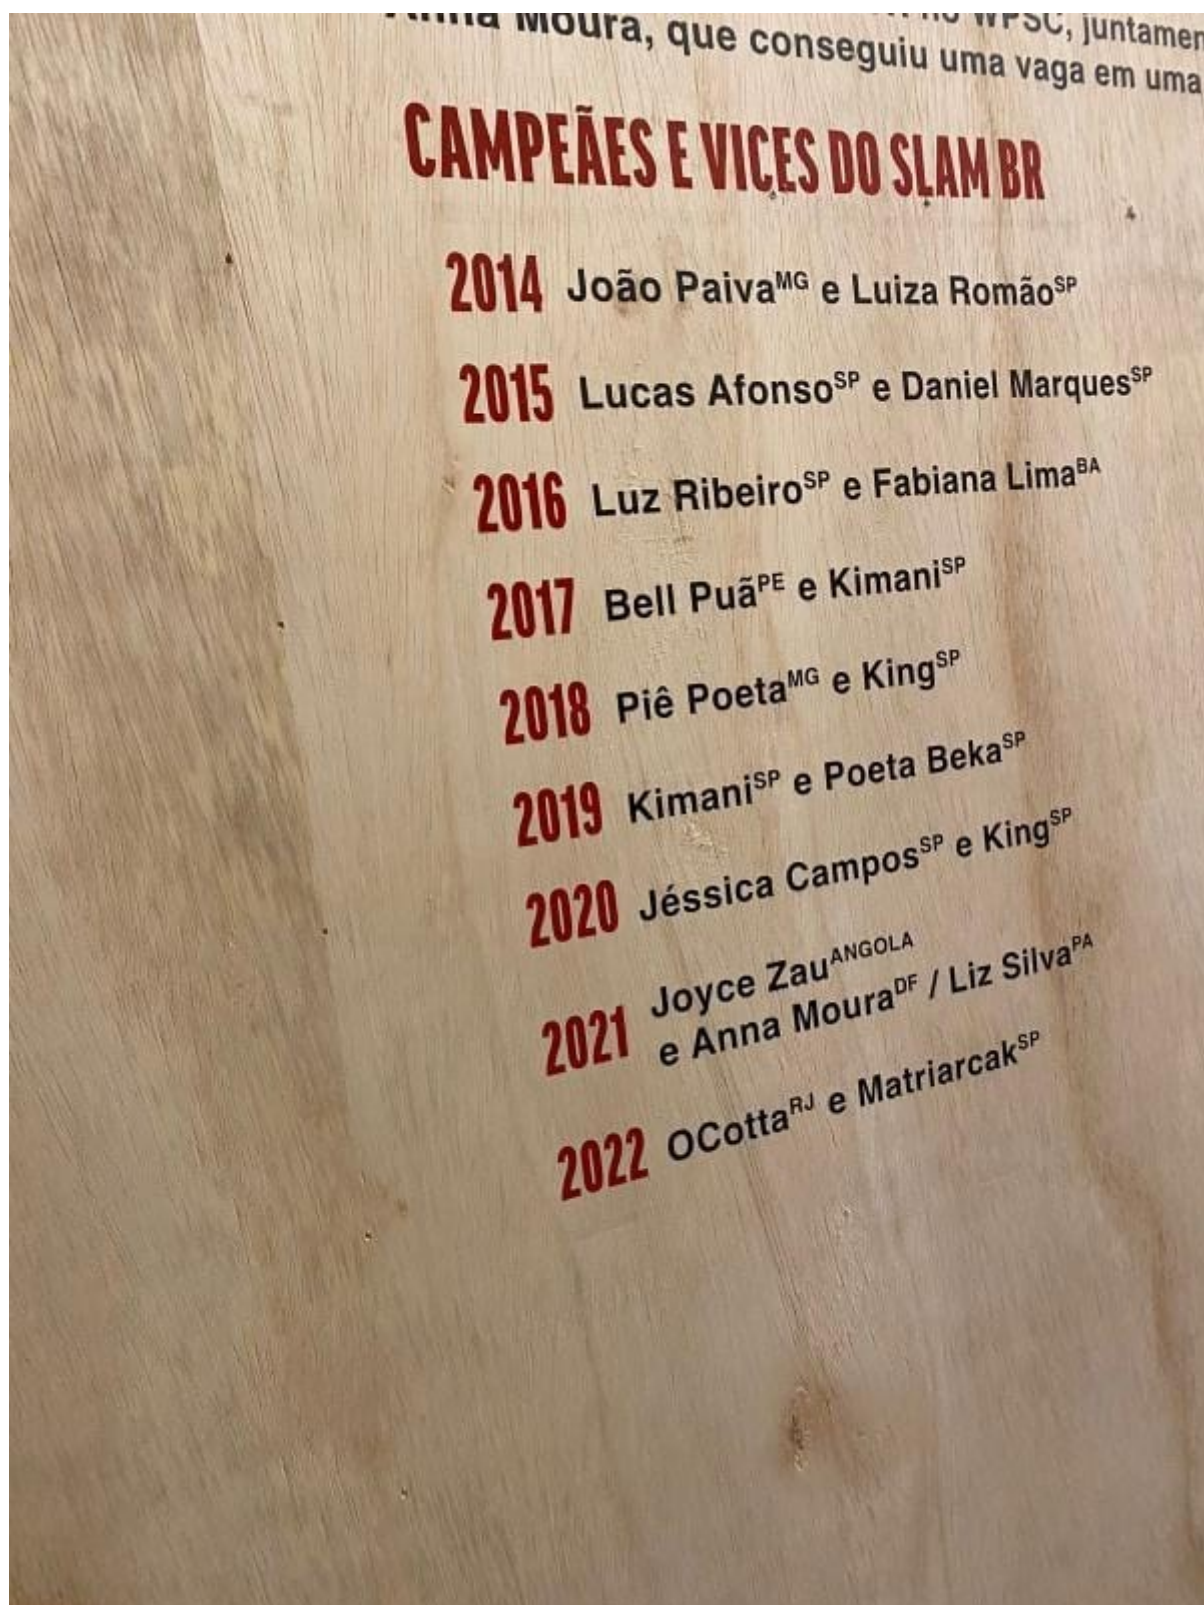 WPSC, juntamen
Anna Moura, que conseguiu uma vaga em uma
CAMPEÃES E VICES DO SLAM BR
2014 João Paiva^MG e Luiza Romão^SP
2015 Lucas Afonso^SP e Daniel Marques^SP
2016 Luz Ribeiro^SP e Fabiana Lima^BA
2017 Bell Puã^PE e Kimani^SP
2018 Piê Poeta^MG e King^SP
2019 Kimani^SP e Poeta Beka^SP
2020 Jéssica Campos^SP e King^SP
2021 Joyce Zau^ANGOLA
e Anna Moura^DF / Liz Silva^PA
2022 OCotta^RJ e Matriarcak^SP